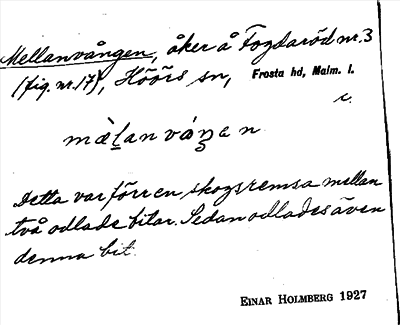 Mellanvången, åker å Fogdaröd nr. 3
(fig. nr. 17), Höörs sn, Frosta hd, Malm. l.
r.
mèl̠anváŋən
Detta var förr en skogsremsa mellan
två odlade bitar. Sedan odlades även
denna bit.
EINAR HOLMBERG 1927